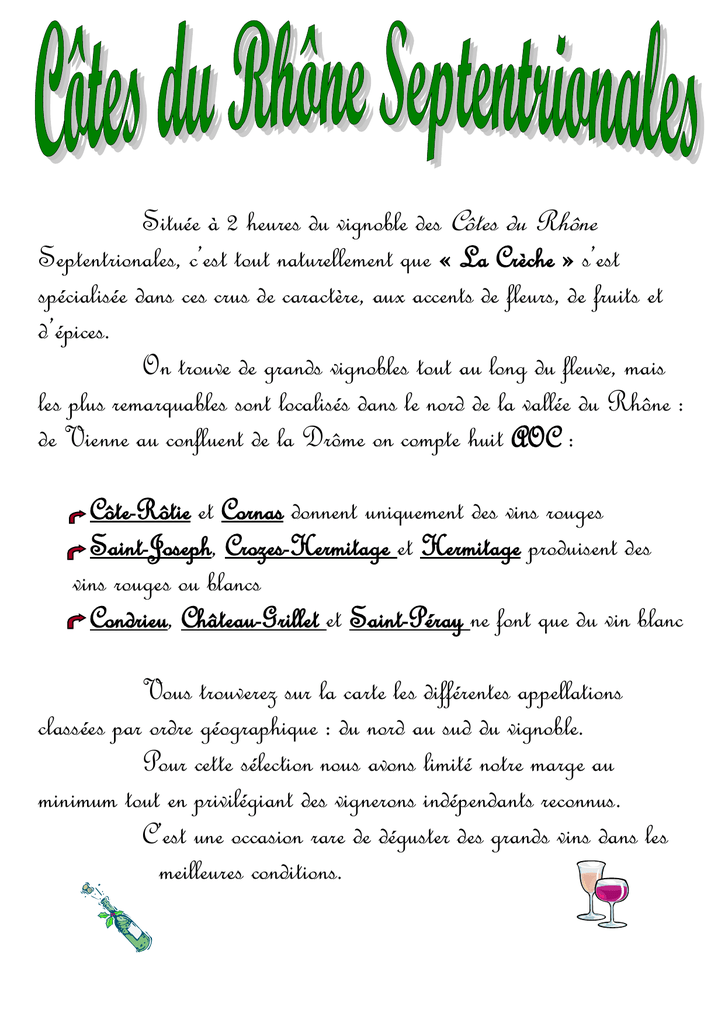 Côtes du Rhône Septentrionales
Située à 2 heures du vignoble des Côtes du Rhône
Septentrionales, c'est tout naturellement que « La Crèche » s'est
spécialisée dans ces crus de caractère, aux accents de fleurs, de fruits et
d'épices.
On trouve de grands vignobles tout au long du fleuve, mais
les plus remarquables sont localisés dans le nord de la vallée du Rhône :
de Vienne au confluent de la Drôme on compte huit AOC :
Côte-Rôtie et Cornas donnent uniquement des vins rouges
Saint-Joseph, Crozes-Hermitage et Hermitage produisent des
vins rouges ou blancs
Condrieu, Château-Grillet et Saint-Péray ne font que du vin blanc
Vous trouverez sur la carte les différentes appellations
classées par ordre géographique : du nord au sud du vignoble.
Pour cette sélection nous avons limité notre marge au
minimum tout en privilégiant des vignerons indépendants reconnus.
C'est une occasion rare de déguster des grands vins dans les
meilleures conditions.